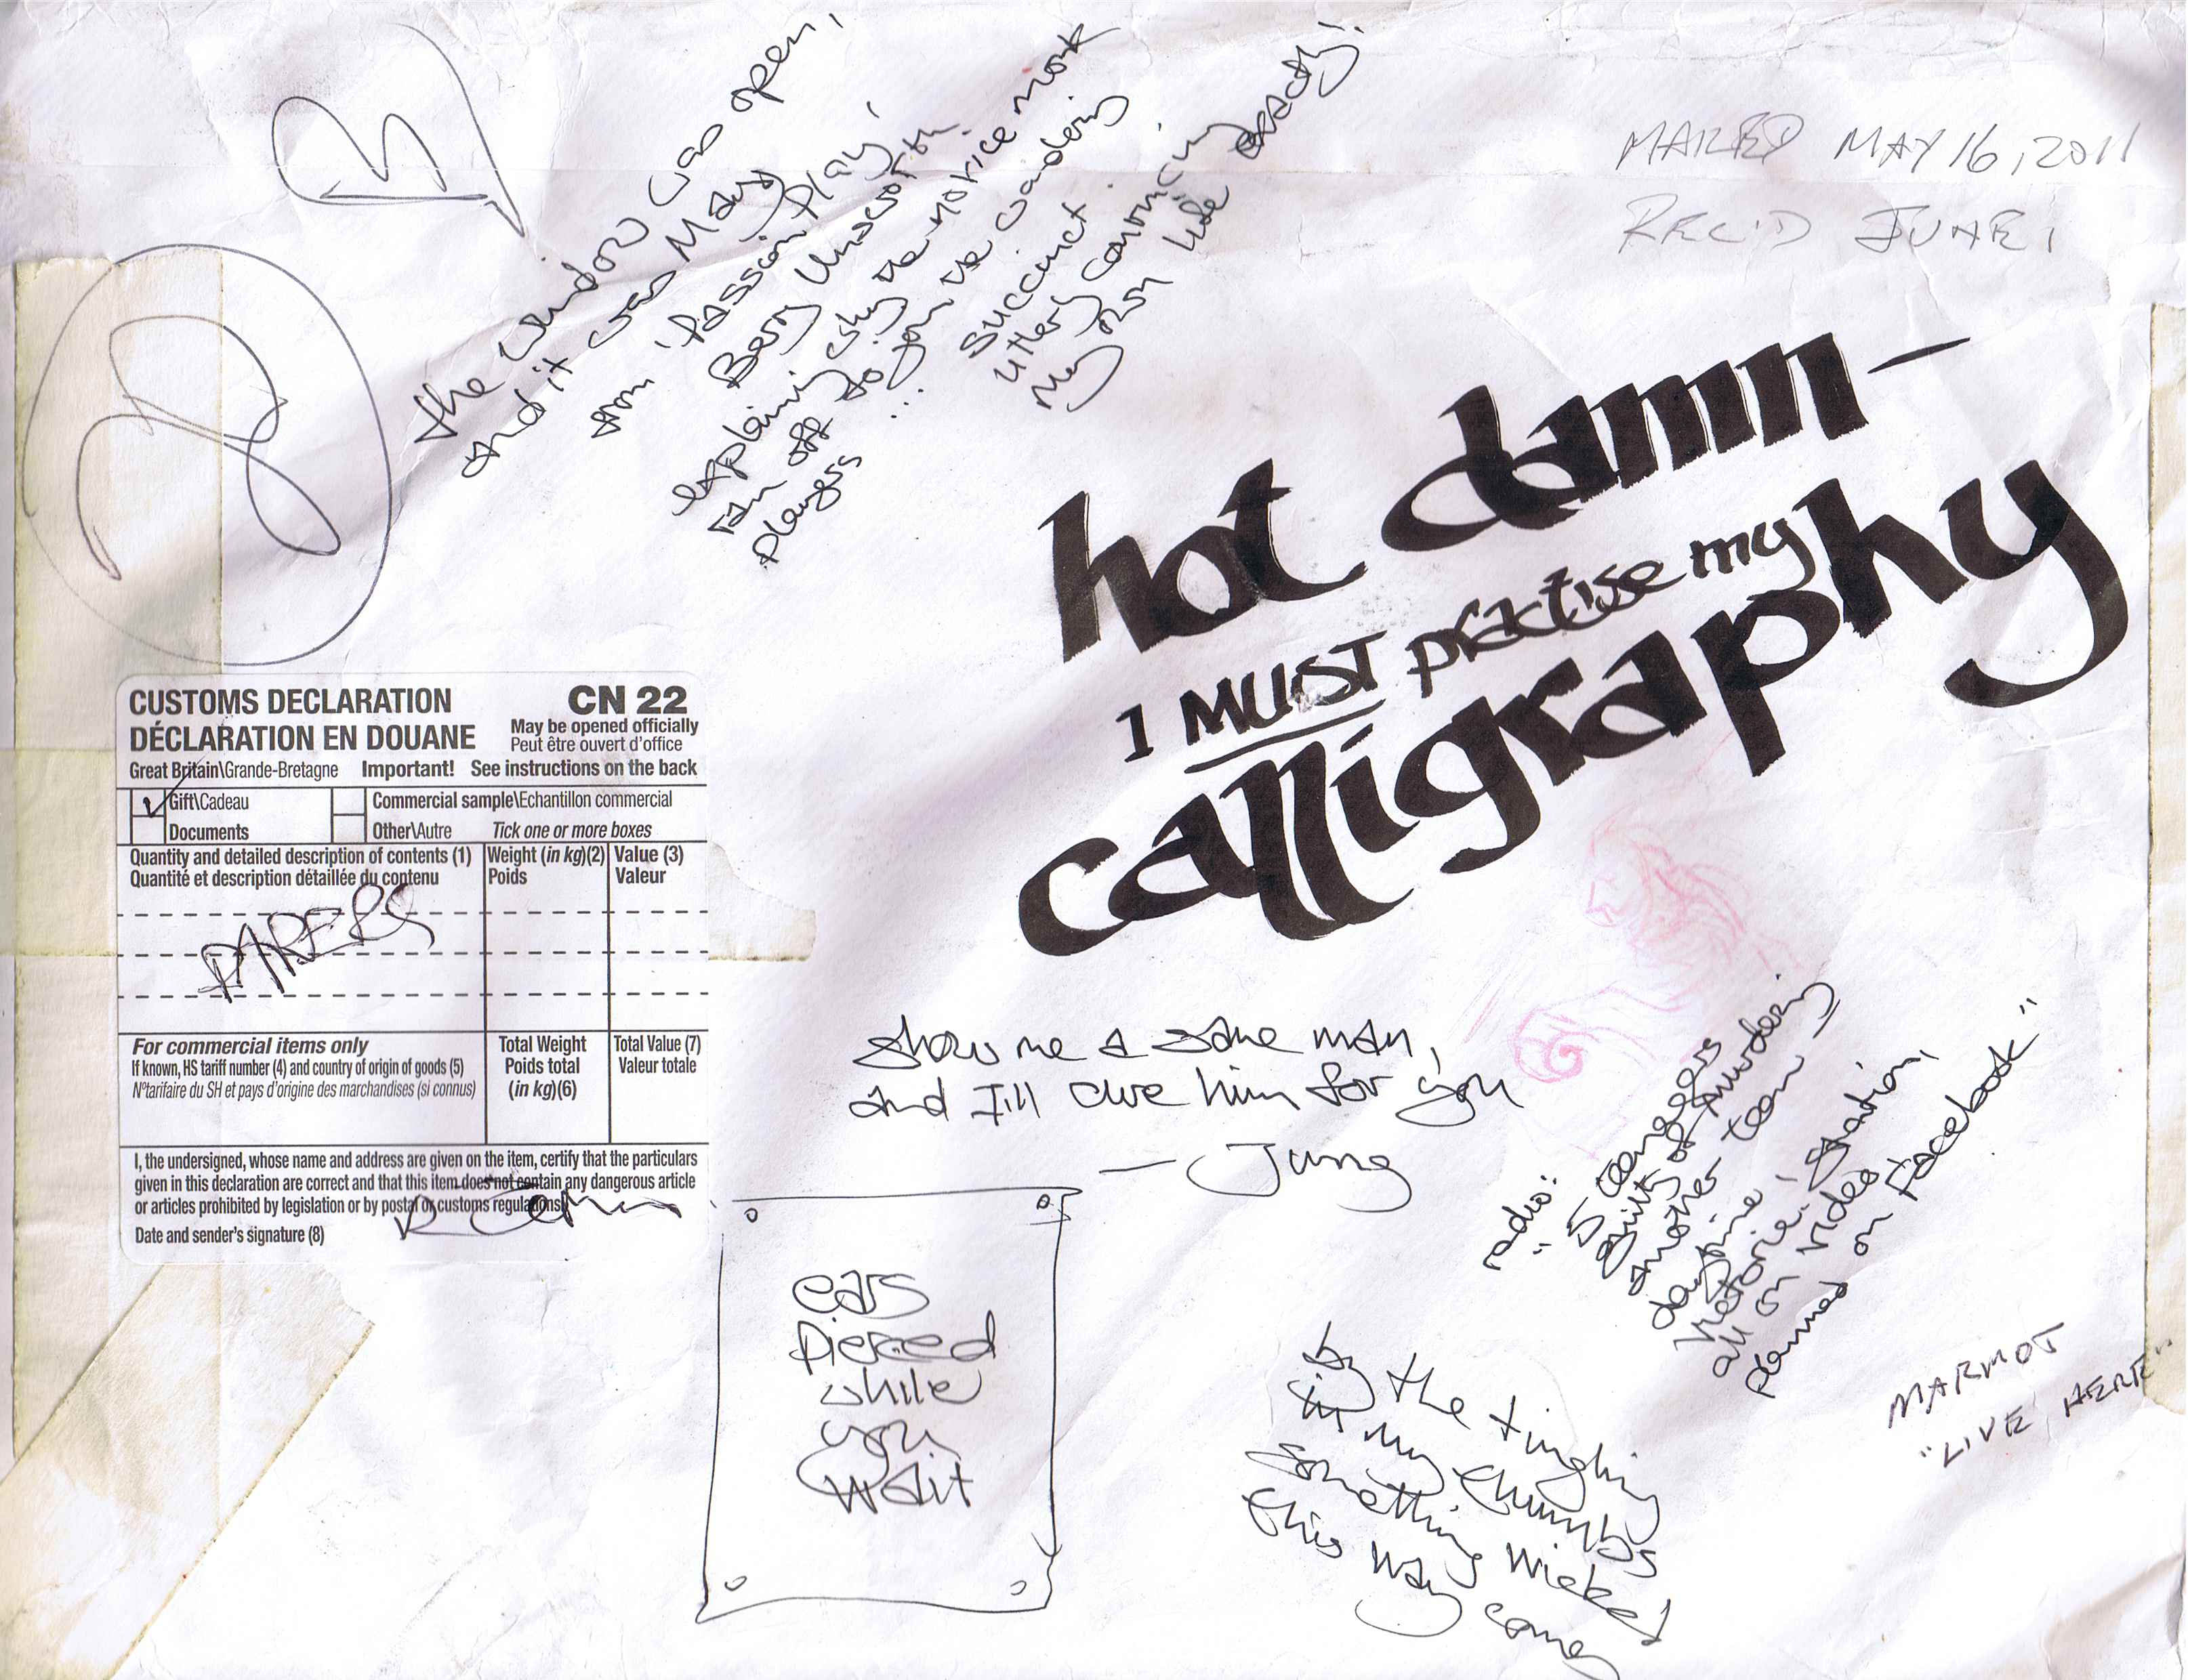 the window was open,
and it was May
from 'Passion Play',
Barry Unsworth.
explaining why the novice monk
ran off to join the wandering
players ...
succinct.
utterly convincing
My son like exactly!
MAILED MAY 16, 2011
REC'D JUNE 1
hot damn-
I MUST practise my
calligraphy
CUSTOMS DECLARATION
DÉCLARATION EN DOUANE
CN 22
May be opened officially
Peut être ouvert d'office
Great Britain\Grande-Bretagne Important! See instructions on the back
Gift\Cadeau
Commercial sample\Echantillon commercial
Documents
Other\Autre Tick one or more boxes
Quantity and detailed description of contents (1)
Quantité et description détaillée du contenu
Weight (in kg)(2)
Poids
Value (3)
Valeur
PAPERS
For commercial items only
If known, HS tariff number (4) and country of origin of goods (5)
N°tarifaire du SH et pays d'origine des marchandises (si connus)
Total Weight
Poids total
(in kg)(6)
Total Value (7)
Valeur totale
I, the undersigned, whose name and address are given on the item, certify that the particulars
given in this declaration are correct and that this item does not contain any dangerous article
or articles prohibited by legislation or by postal or customs regulations
Date and sender's signature (8)
show me a sane man,
and I'll cure him for you
— Jung
radio:
"5 teenagers
guilty of murdering
another teen
daytime,
Victoria Station,
all on video
planned on Facebook"
ears
pierced
while
you
wait
by the tingling
in my thumbs
something wicked
this way comes
MARMOT
"LIVE HERE"